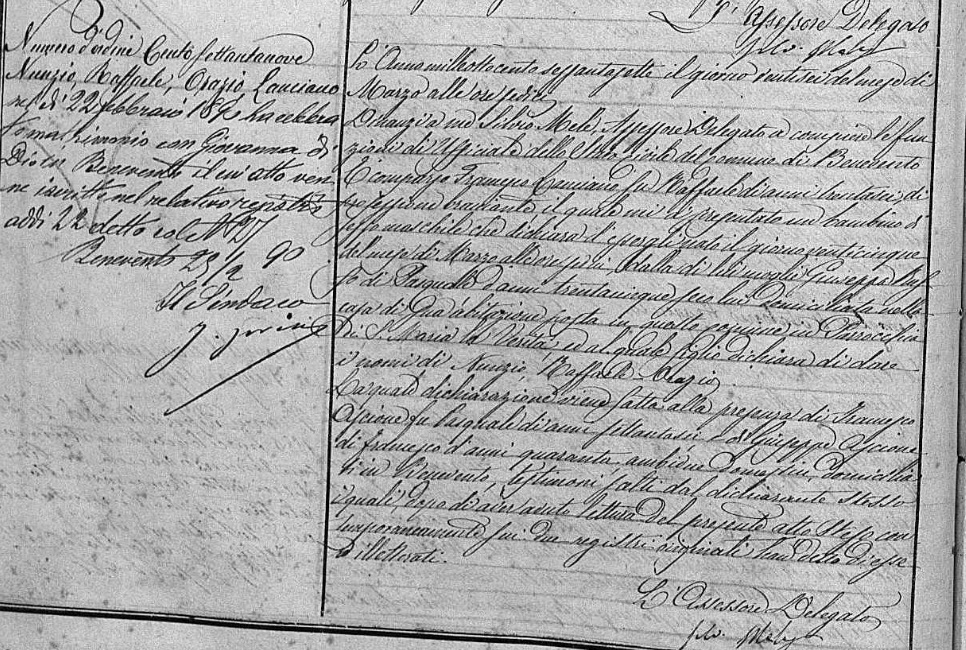 L'Assessore Delegato
Silv. Mely
Numero d'ordine Cento settantanove
Nunzio, Raffaele, Orazio Lanciano
nel dì 22 febbraio 1890 ha celebra
to matrimonio con Giovanna di
Dio in Benevento il cui atto ven
ne iscritto nel relativo registro
addì 22 detto col N 27
Benevento 23/2 90
Il Sindaco
L'Anno milleottocento sessantasette il giorno ventisei del mese di
Marzo alle ore sedici
Dinanzi a me Silvio Mele, Assessore Delegato a compiere le fun
zioni di Uffiziale dello Stato Civile del comune di Benevento
È comparso Francesco Lanciano fu Raffaele di anni trentasei di
professione bracciante il quale mi à presentato un bambino di
sesso maschile che dichiara l'essergli nato il giorno venticinque
del mese di Marzo alle ore sedici, dalla di lui moglie Giuseppa
di Pasquale d'anni trentacinque seco lui domiciliata nella
casa di sua abitazione posta in questo comune in Parrocchia
di S. Maria la Verità, ed al quale figlio dichiara di dare
i nomi di Nunzio, Raffaele Orazio.
La quale dichiarazione viene fatta alla presenza di Francesco
Ascione fu Pasquale di anni settantasei e di Giuseppe Ascione
di Francesco d'anni quaranta, ambidue domestici, domicilia
ti in Benevento, testimoni fatti dal dichiarante stesso
i quali, dopo di aver avuto lettura del presente atto steso con
temporaneamente sui due registri originali han detto di esse
re illetterati.
L'Assessore Delegato
Silv. Mely